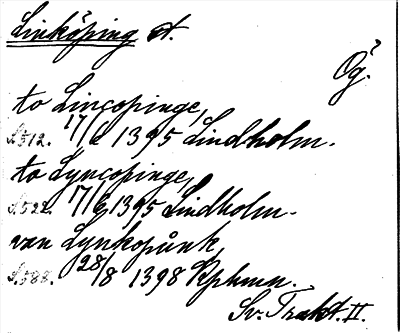 Linköping st.
Ög.
to Lincopinge,
S.512. 17/6 1395 Lindholm.
to Lyncopinge,
S.522. 17/6 1395 Lindholm.
van Lynkopůnk,
S.588. 28/8 1398 Kphmn.
Sv. Trakt. II.